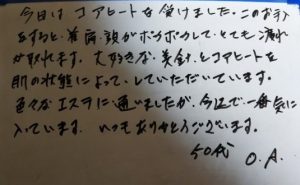 今日は コアヒートを受けました。このお手入
をすると、首肩、頭がポカポカして、とても 疲れ
が取れます。大好きな、美針とコアヒートを
肌の状態によって、していただいています。
色々な エステに 通いましたが、今迄で一番気に
入っています。いつもありがとうございます。
50代 O.A.